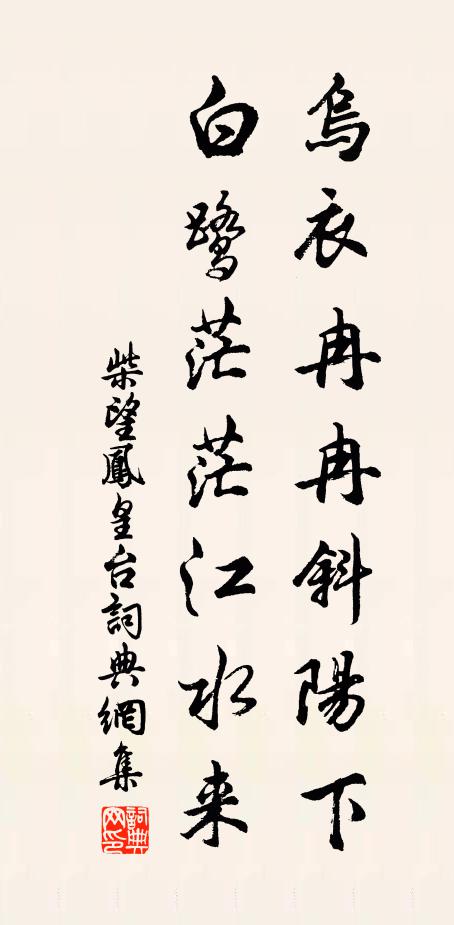 烏衣冉冉斜陽下
白鹭茫茫江水来
柴望鳳皇台詞典網集
詞典网印